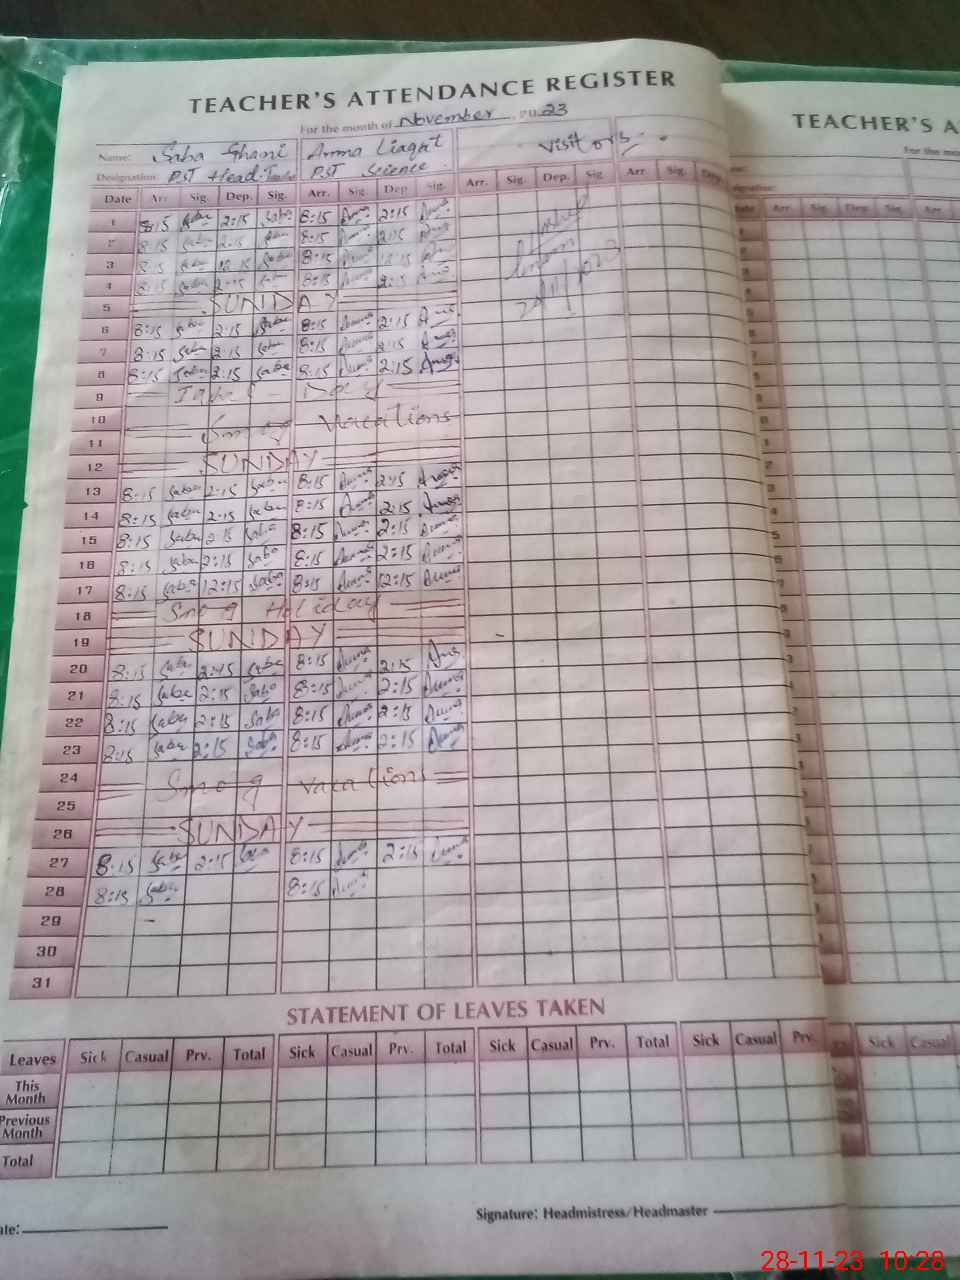 TEACHER'S ATTENDANCE REGISTER
For the month of November 2023
Name: Saba Ghani Amna Liaqat Visitors
Designation: PST Head Teacher PST Science
Date Arr. Sig. Dep. Sig. Arr. Sig. Dep. Sig. Arr. Sig. Dep. Sig. Arr. Sig. Dep.
1 8:15 Saba 2:15 Saba 8:15 Amna 2:15 Amna
2 8:15 Saba 2:15 Saba 8:15 Amna 2:15 Amna
3 8:15 Saba 12:15 Saba 8:15 Amna 12:15 Amna
4 8:15 Saba 2:15 Saba 8:15 Amna 2:15 Amna
5 SUNDAY
6 8:15 Saba 2:15 Saba 8:15 Amna 2:15 Amna
7 8:15 Saba 2:15 Saba 8:15 Amna 2:15 Amna
8 8:15 Saba 2:15 Saba 8:15 Amna 2:15 Amna
9 Iqbal Day
10 Smog Vacations
11
12 SUNDAY
13 8:15 Saba 2:15 Saba 8:15 Amna 2:15 Amna
14 8:15 Saba 2:15 Saba 8:15 Amna 2:15 Amna
15 8:15 Saba 2:15 Saba 8:15 Amna 2:15 Amna
16 8:15 Saba 2:15 Saba 8:15 Amna 2:15 Amna
17 8:15 Saba 12:15 Saba 8:15 Amna 12:15 Amna
18 Smog Holiday
19 SUNDAY
20 8:15 Saba 2:15 Saba 8:15 Amna 2:15 Amna
21 8:15 Saba 2:15 Saba 8:15 Amna 2:15 Amna
22 8:15 Saba 2:15 Saba 8:15 Amna 2:15 Amna
23 8:15 Saba 2:15 Saba 8:15 Amna 2:15 Amna
24 Smog Vacations
25
26 SUNDAY
27 8:15 Saba 2:15 Saba 8:15 Amna 2:15 Amna
28 8:15 Saba 8:15 Amna
29
30
31
STATEMENT OF LEAVES TAKEN
Leaves Sick Casual Prv. Total Sick Casual Prv. Total Sick Casual Prv. Total Sick Casual Prv.
This Month
Previous Month
Total
Signature: Headmistress/Headmaster
TEACHER'S A
For the mo
Arr. Sig. Dep. Sig. Arr.
Sick Casual
28-11-23 10:28